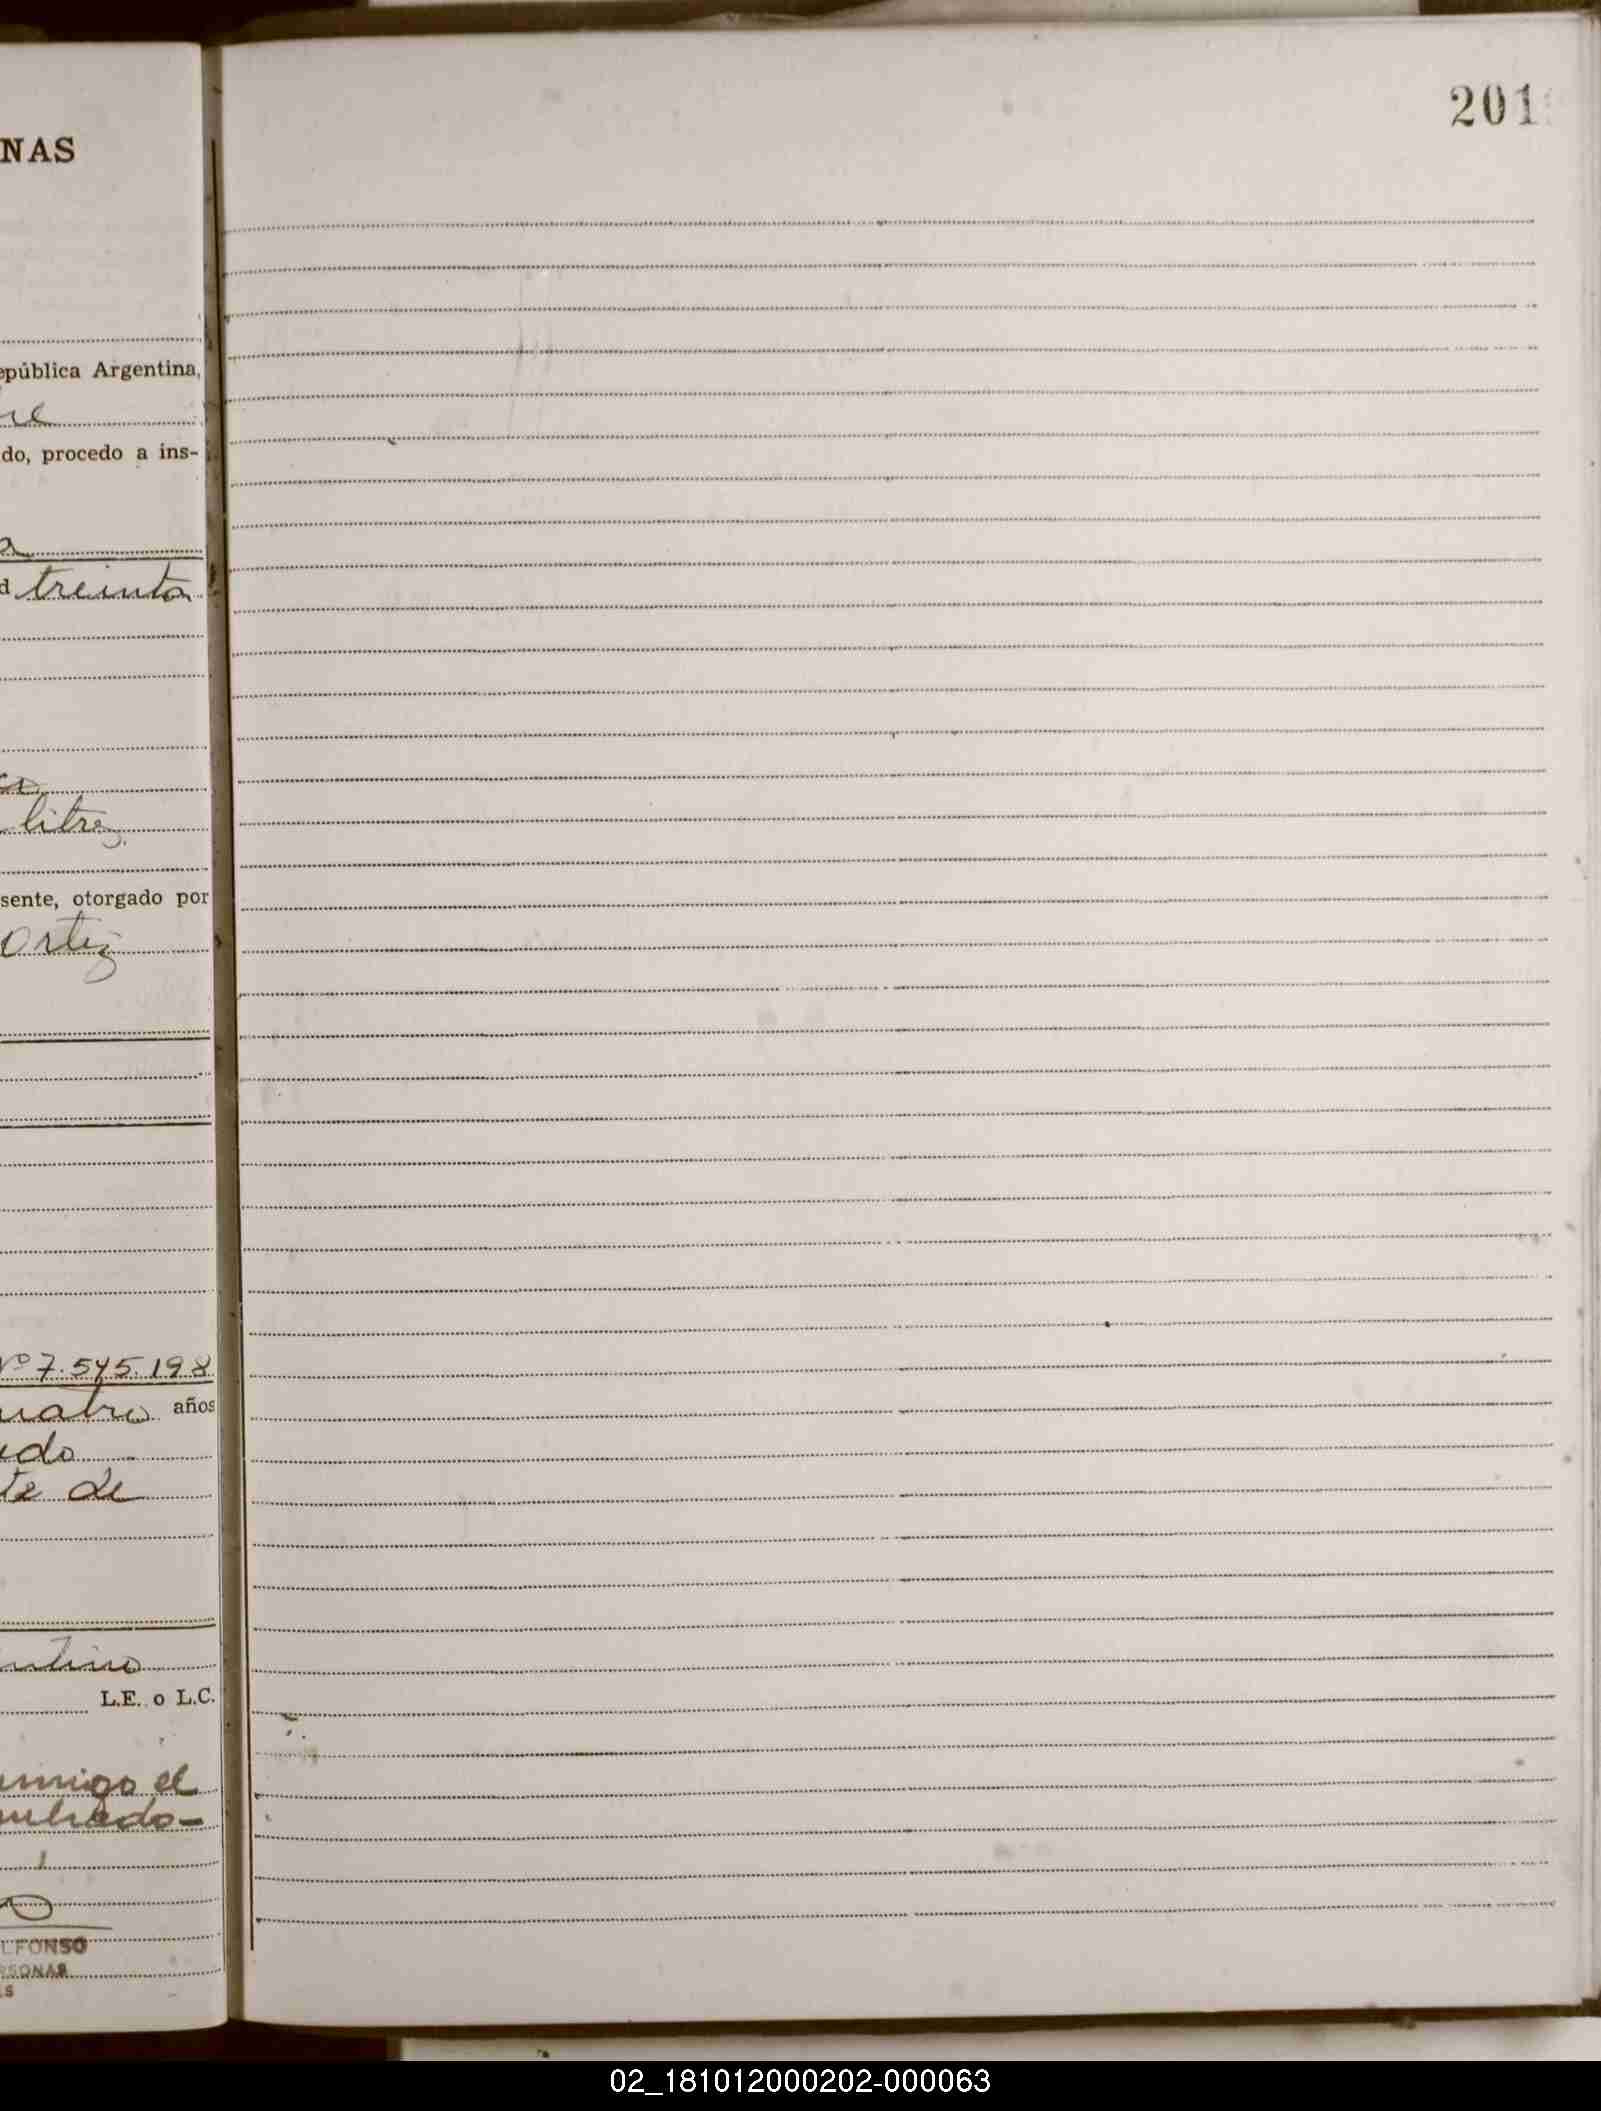 201
NAS
epública Argentina,
re
do, procedo a ins-
d treinta
litre
sente, otorgado por
Ortiz
Nº 7.545.198
uatro años
ido
te de
ntino
L.E. o L.C.
nmigo el
mbrado-
LFONSO
RSONAS
S
02_181012000202-000063